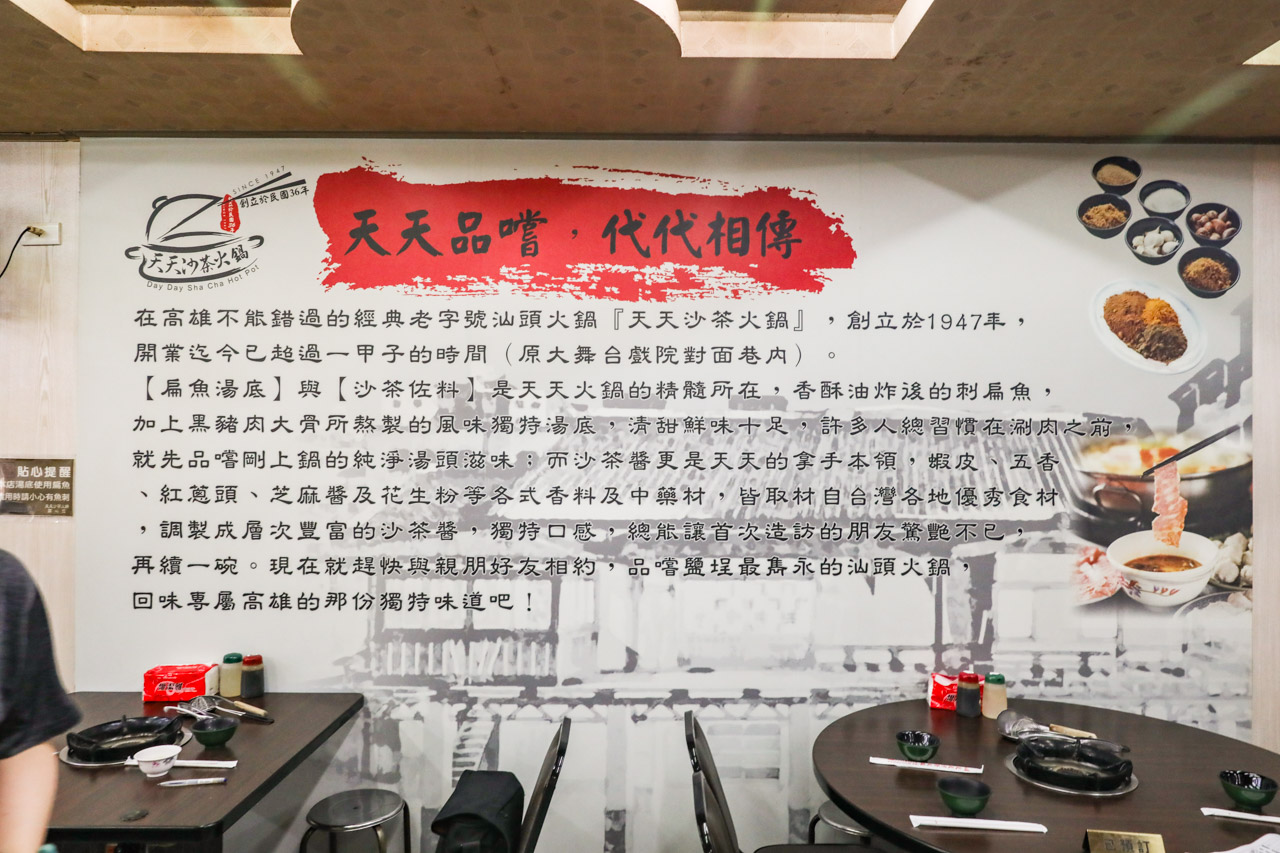 SINCE 1947
創立於民國36年
天天沙茶火鍋
Day Day Sha Cha Hot Pot
天天品嚐，代代相傳
在高雄不能錯過的經典老字號汕頭火鍋『天天沙茶火鍋』，創立於1947年，
開業迄今已超過一甲子的時間（原大舞台戲院對面巷內）。
【扁魚湯底】與【沙茶佐料】是天天火鍋的精髓所在，香酥油炸後的刺扁魚，
加上黑豬肉大骨所熬製的風味獨特湯底，清甜鮮味十足，許多人總習慣在涮肉之前，
就先品嚐剛上鍋的純淨湯頭滋味；而沙茶醬更是天天的拿手本領，蝦皮、五香
、紅蔥頭、芝麻醬及花生粉等各式香料及中藥材，皆取材自台灣各地優秀食材
，調製成層次豐富的沙茶醬，獨特口感，總能讓首次造訪的朋友驚艷不已，
再續一碗。現在就趕快與親朋好友相約，品嚐鹽埕最雋永的汕頭火鍋，
回味專屬高雄的那份獨特味道吧！
貼心提醒
本店湯底使用扁魚
食用時請小心有魚刺
已預訂